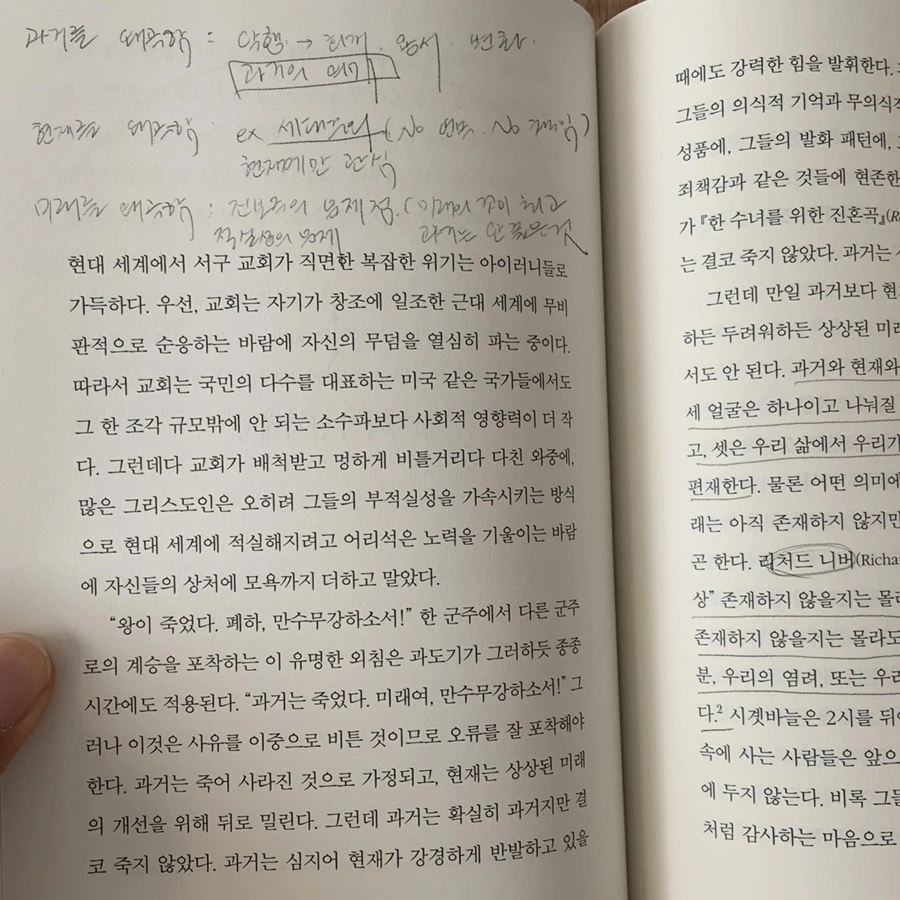 과거를 왜곡함 : 악행 → 회개. 용서. 변화.
과거의
현재를 왜곡함 : ex 세대주의 (No 변화. No 책임)
현재에만 관심
미래를 왜곡함 : 진보주의 문제점. (미래의 것이 최고
적실성의 문제 과거는 안 좋은 것
현대 세계에서 서구 교회가 직면한 복잡한 위기는 아이러니들로
가득하다. 우선, 교회는 자기가 창조에 일조한 근대 세계에 무비
판적으로 순응하는 바람에 자신의 무덤을 열심히 파는 중이다.
따라서 교회는 국민의 다수를 대표하는 미국 같은 국가들에서도
그 한 조각 규모밖에 안 되는 소수파보다 사회적 영향력이 더 작
다. 그런데다 교회가 배척받고 멍하게 비틀거리다 다친 와중에,
많은 그리스도인은 오히려 그들의 부적실성을 가속시키는 방식
으로 현대 세계에 적실해지려고 어리석은 노력을 기울이는 바람
에 자신들의 상처에 모욕까지 더하고 말았다.
“왕이 죽었다. 폐하, 만수무강하소서!” 한 군주에서 다른 군주
로의 계승을 포착하는 이 유명한 외침은 과도기가 그러하듯 종종
시간에도 적용된다. “과거는 죽었다. 미래여, 만수무강하소서!” 그
러나 이것은 사유를 이중으로 비튼 것이므로 오류를 잘 포착해야
한다. 과거는 죽어 사라진 것으로 가정되고, 현재는 상상된 미래
의 개선을 위해 뒤로 밀린다. 그런데 과거는 확실히 과거지만 결
코 죽지 않았다. 과거는 심지어 현재가 강경하게 반발하고 있을
때에도 강력한 힘을 발휘한다.
그들의 의식적 기억과 무의식적
성품에, 그들의 발화 패턴에,
죄책감과 같은 것들에 현존한
가 『한 수녀를 위한 진혼곡』(R
는 결코 죽지 않았다. 과거는
그런데 만일 과거보다 현
하든 두려워하든 상상된 미래
서도 안 된다. 과거와 현재와
세 얼굴은 하나이고 나눠질
고, 셋은 우리 삶에서 우리가
편재한다. 물론 어떤 의미에
래는 아직 존재하지 않지만
곤 한다. 리처드 니버(Richa
상” 존재하지 않을지는 몰
존재하지 않을지는 몰라도
분, 우리의 염려, 또는 우리
다.² 시곗바늘은 2시를 뒤
속에 사는 사람들은 앞으
에 두지 않는다. 비록 그들
처럼 감사하는 마음으로